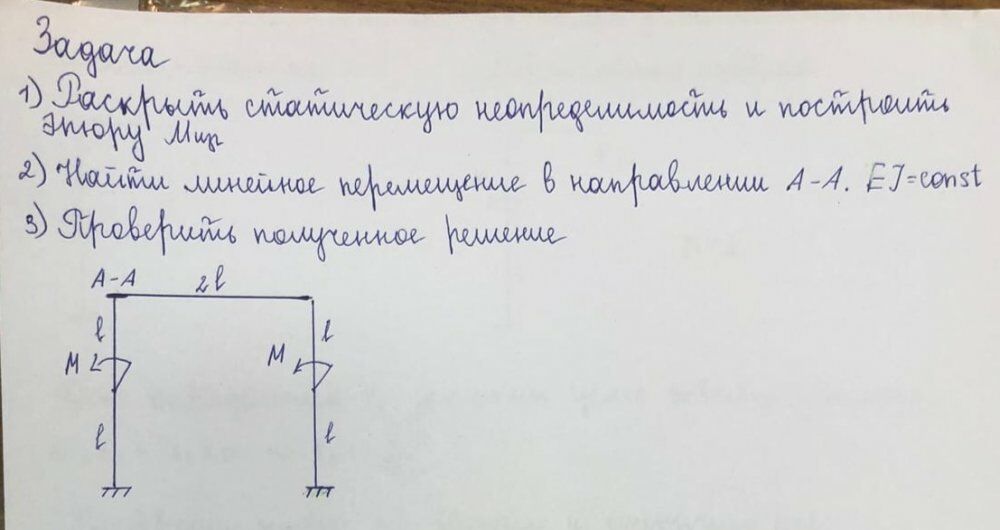 Задача
1) Раскрыть статическую неопределимость и построить
эпюру Mизг
2) Найти линейное перемещение в направлении А-А. EJ=const
3) Проверить полученное решение
А-А 2l
l l
M M
l l